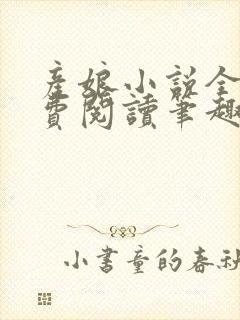 産娘小说全
費閱讀筆趣
小書童的春秋